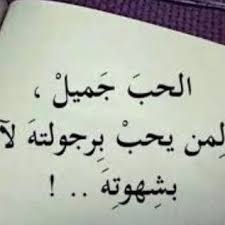 الحبَ جَميلْ ،
لِمن يحبْ بِرجولتهَ لآ
بشِهوتِهَ . . !